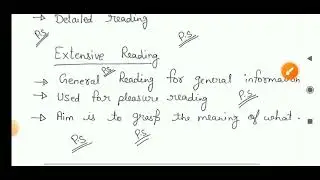 → Detailed reading
P.S P.S
Extensive Reading
P.S
→ General Reading for general information
→ Used for pleasure reading P.S
→ Aim is to grasp the meaning of what.
P.S P.S